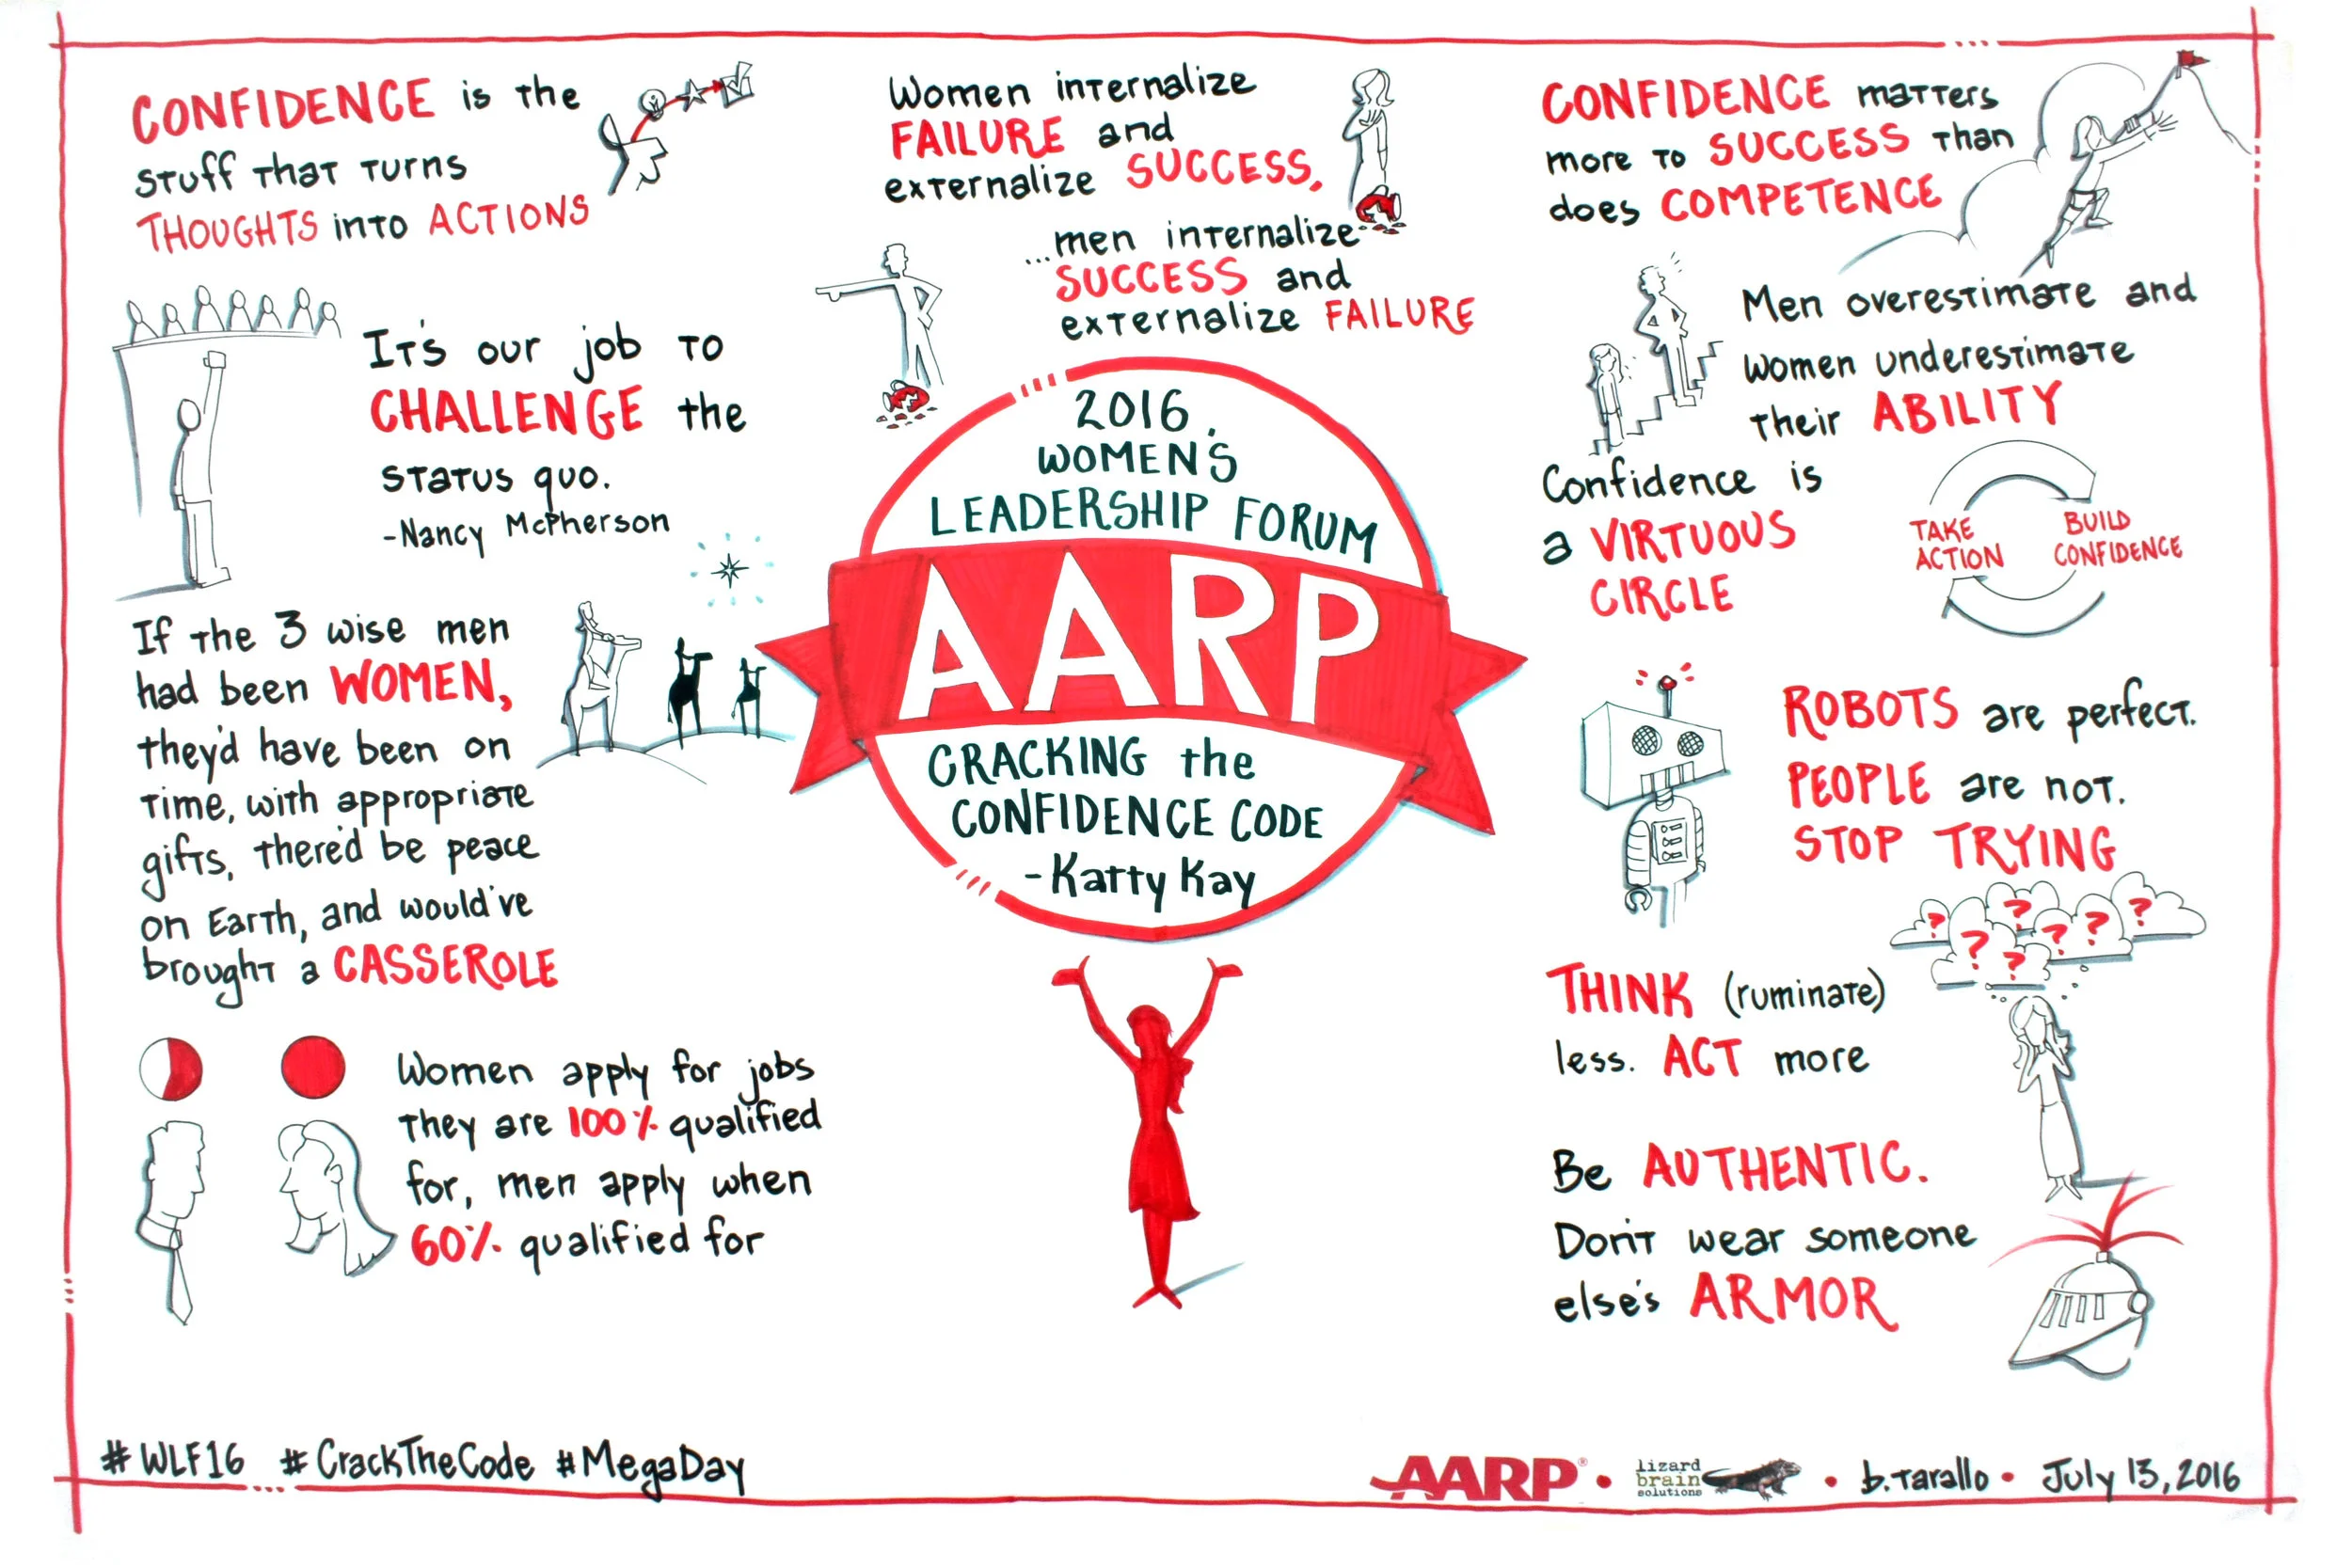 CONFIDENCE is the
stuff that turns
THOUGHTS into ACTIONS
It's our job to
CHALLENGE the
status quo.
-Nancy McPherson
If the 3 wise men
had been WOMEN,
they'd have been on
time, with appropriate
gifts, there'd be peace
on Earth, and would've
brought a CASSEROLE
Women apply for jobs
they are 100% qualified
for, men apply when
60% qualified for
Women internalize
FAILURE and
externalize SUCCESS,
...men internalize
SUCCESS and
externalize FAILURE
2016
WOMEN'S
LEADERSHIP FORUM
AARP
CRACKING the
CONFIDENCE CODE
-Katty Kay
CONFIDENCE matters
more to SUCCESS than
does COMPETENCE
Men overestimate and
women underestimate
their ABILITY
Confidence is
a VIRTUOUS
CIRCLE
TAKE
ACTION
BUILD
CONFIDENCE
ROBOTS are perfect.
PEOPLE are not.
STOP TRYING
? ? ? ? ? ? ?
THINK (ruminate)
less. ACT more
Be AUTHENTIC.
Don't wear someone
else's ARMOR
#WLF16 #CrackTheCode #MegaDay
AARP® • lizard
brain
solutions
• b.tarallo • July 13, 2016